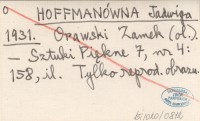 o HOFFMANÓWNA Jadwiga
1931. Orawski Zamek (ol.).
— Sztuki Piękne 7, nr 4:
158, il. Tylko reprod. obrazu.